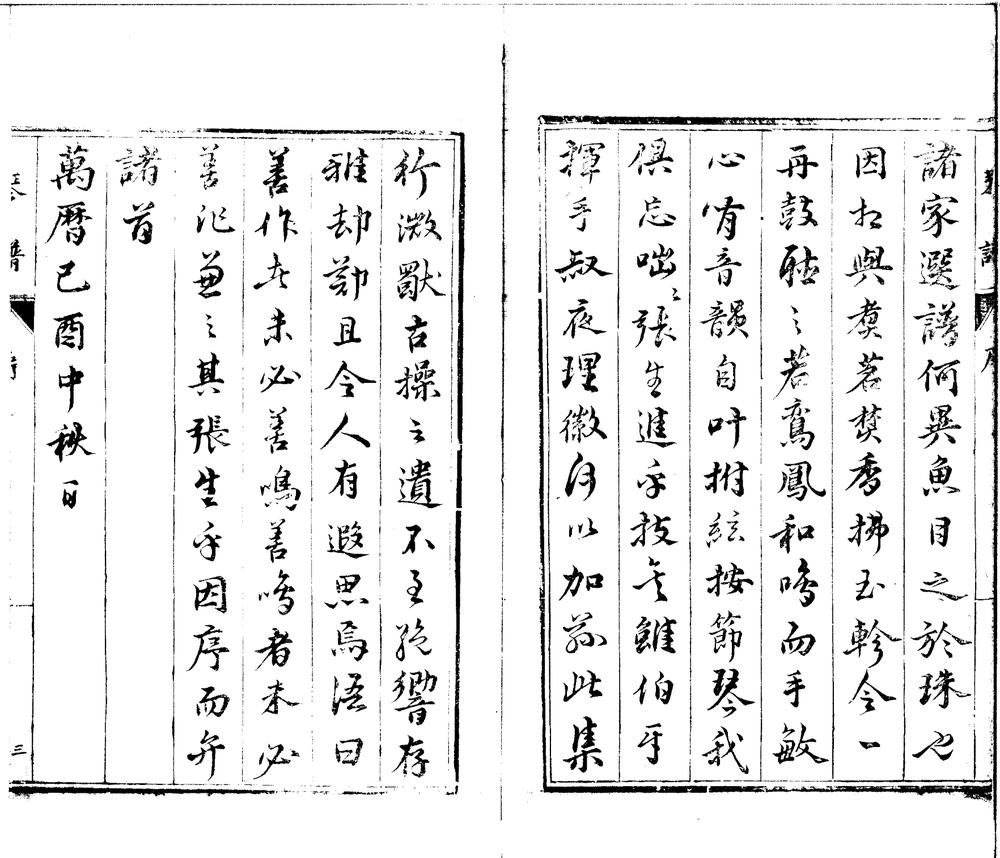 諸家選譜何異魚目之於珠也
因相與煑茗焚香拂玉軫令一
再鼓聽之若鸞鳳和鳴而手敏
心宵音韻自叶拊絃按節琴我
俱忘咄々張生進乎技矣雖伯牙
揮手叔夜理徽何以加茲此集
行微獸古操之遺不至絕響存
雅却鄭且令人有遐思焉語曰
善作者未必善鳴善鳴者未必
善作兼之其張生乎因序而弁
諸首
萬曆己酉中秋日
琴譜 序
琴譜 序 三